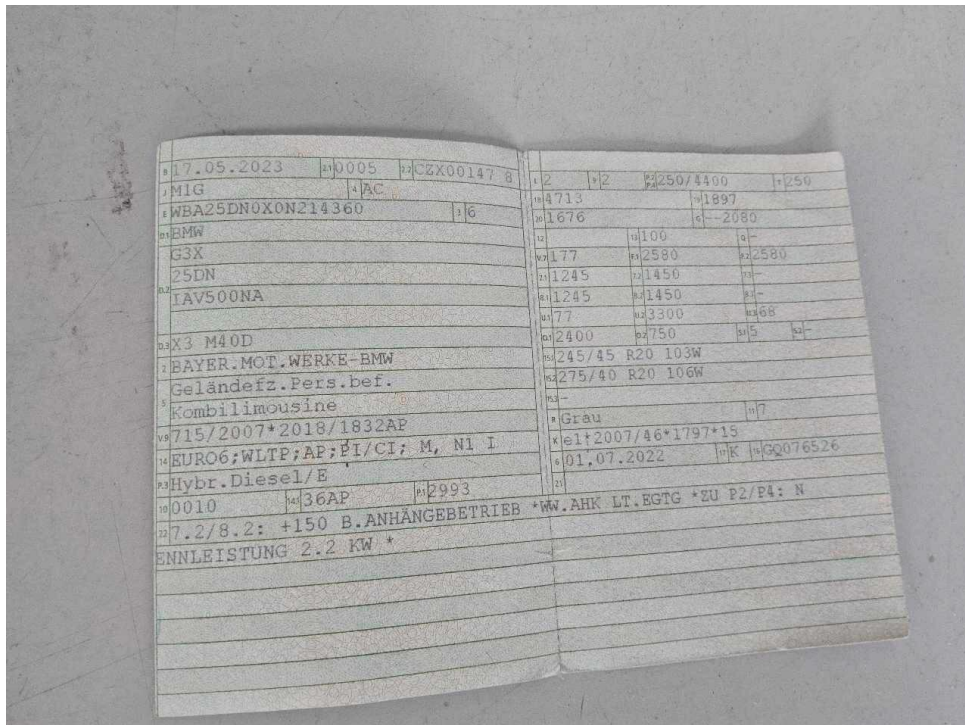 B 17.05.2023 2.1 0005 2.2 CZX00147 8
J M1G 4 AC
E WBA25DN0X0N214360 3 6
D.1 BMW
D.2 G3X
25DN
IAV500NA
D.3 X3 M40D
2 BAYER.MOT.WERKE-BMW
5 Geländefz.Pers.bef.
Kombilimousine
V.9 715/2007*2018/1832AP
14 EURO6;WLTP;AP;PI/CI; M, N1 I
P.3 Hybr.Diesel/E
10 0010 14.1 36AP P.1 2993
22 7.2/8.2: +150 B.ANHÄNGEBETRIEB *WW.AHK LT.EGTG *ZU P2/P4: N
ENNLEISTUNG 2.2 KW *
L 2 9 2 P.2 P.4 250/4400 T 250
18 4713 19 1897
20 1676 G --2080
12 13 100 Q -
V.7 177 F.1 2580 F.2 2580
7.1 1245 7.2 1450 7.3 -
8.1 1245 8.2 1450 8.3 -
U.1 77 U.2 3300 U.3 68
O.1 2400 O.2 750 S.1 5 S.2 -
15.1 245/45 R20 103W
15.2 275/40 R20 106W
15.3 -
R Grau 11 7
K e1†2007/46*1797*15
6 01.07.2022 17 K 16 GQ076526
21